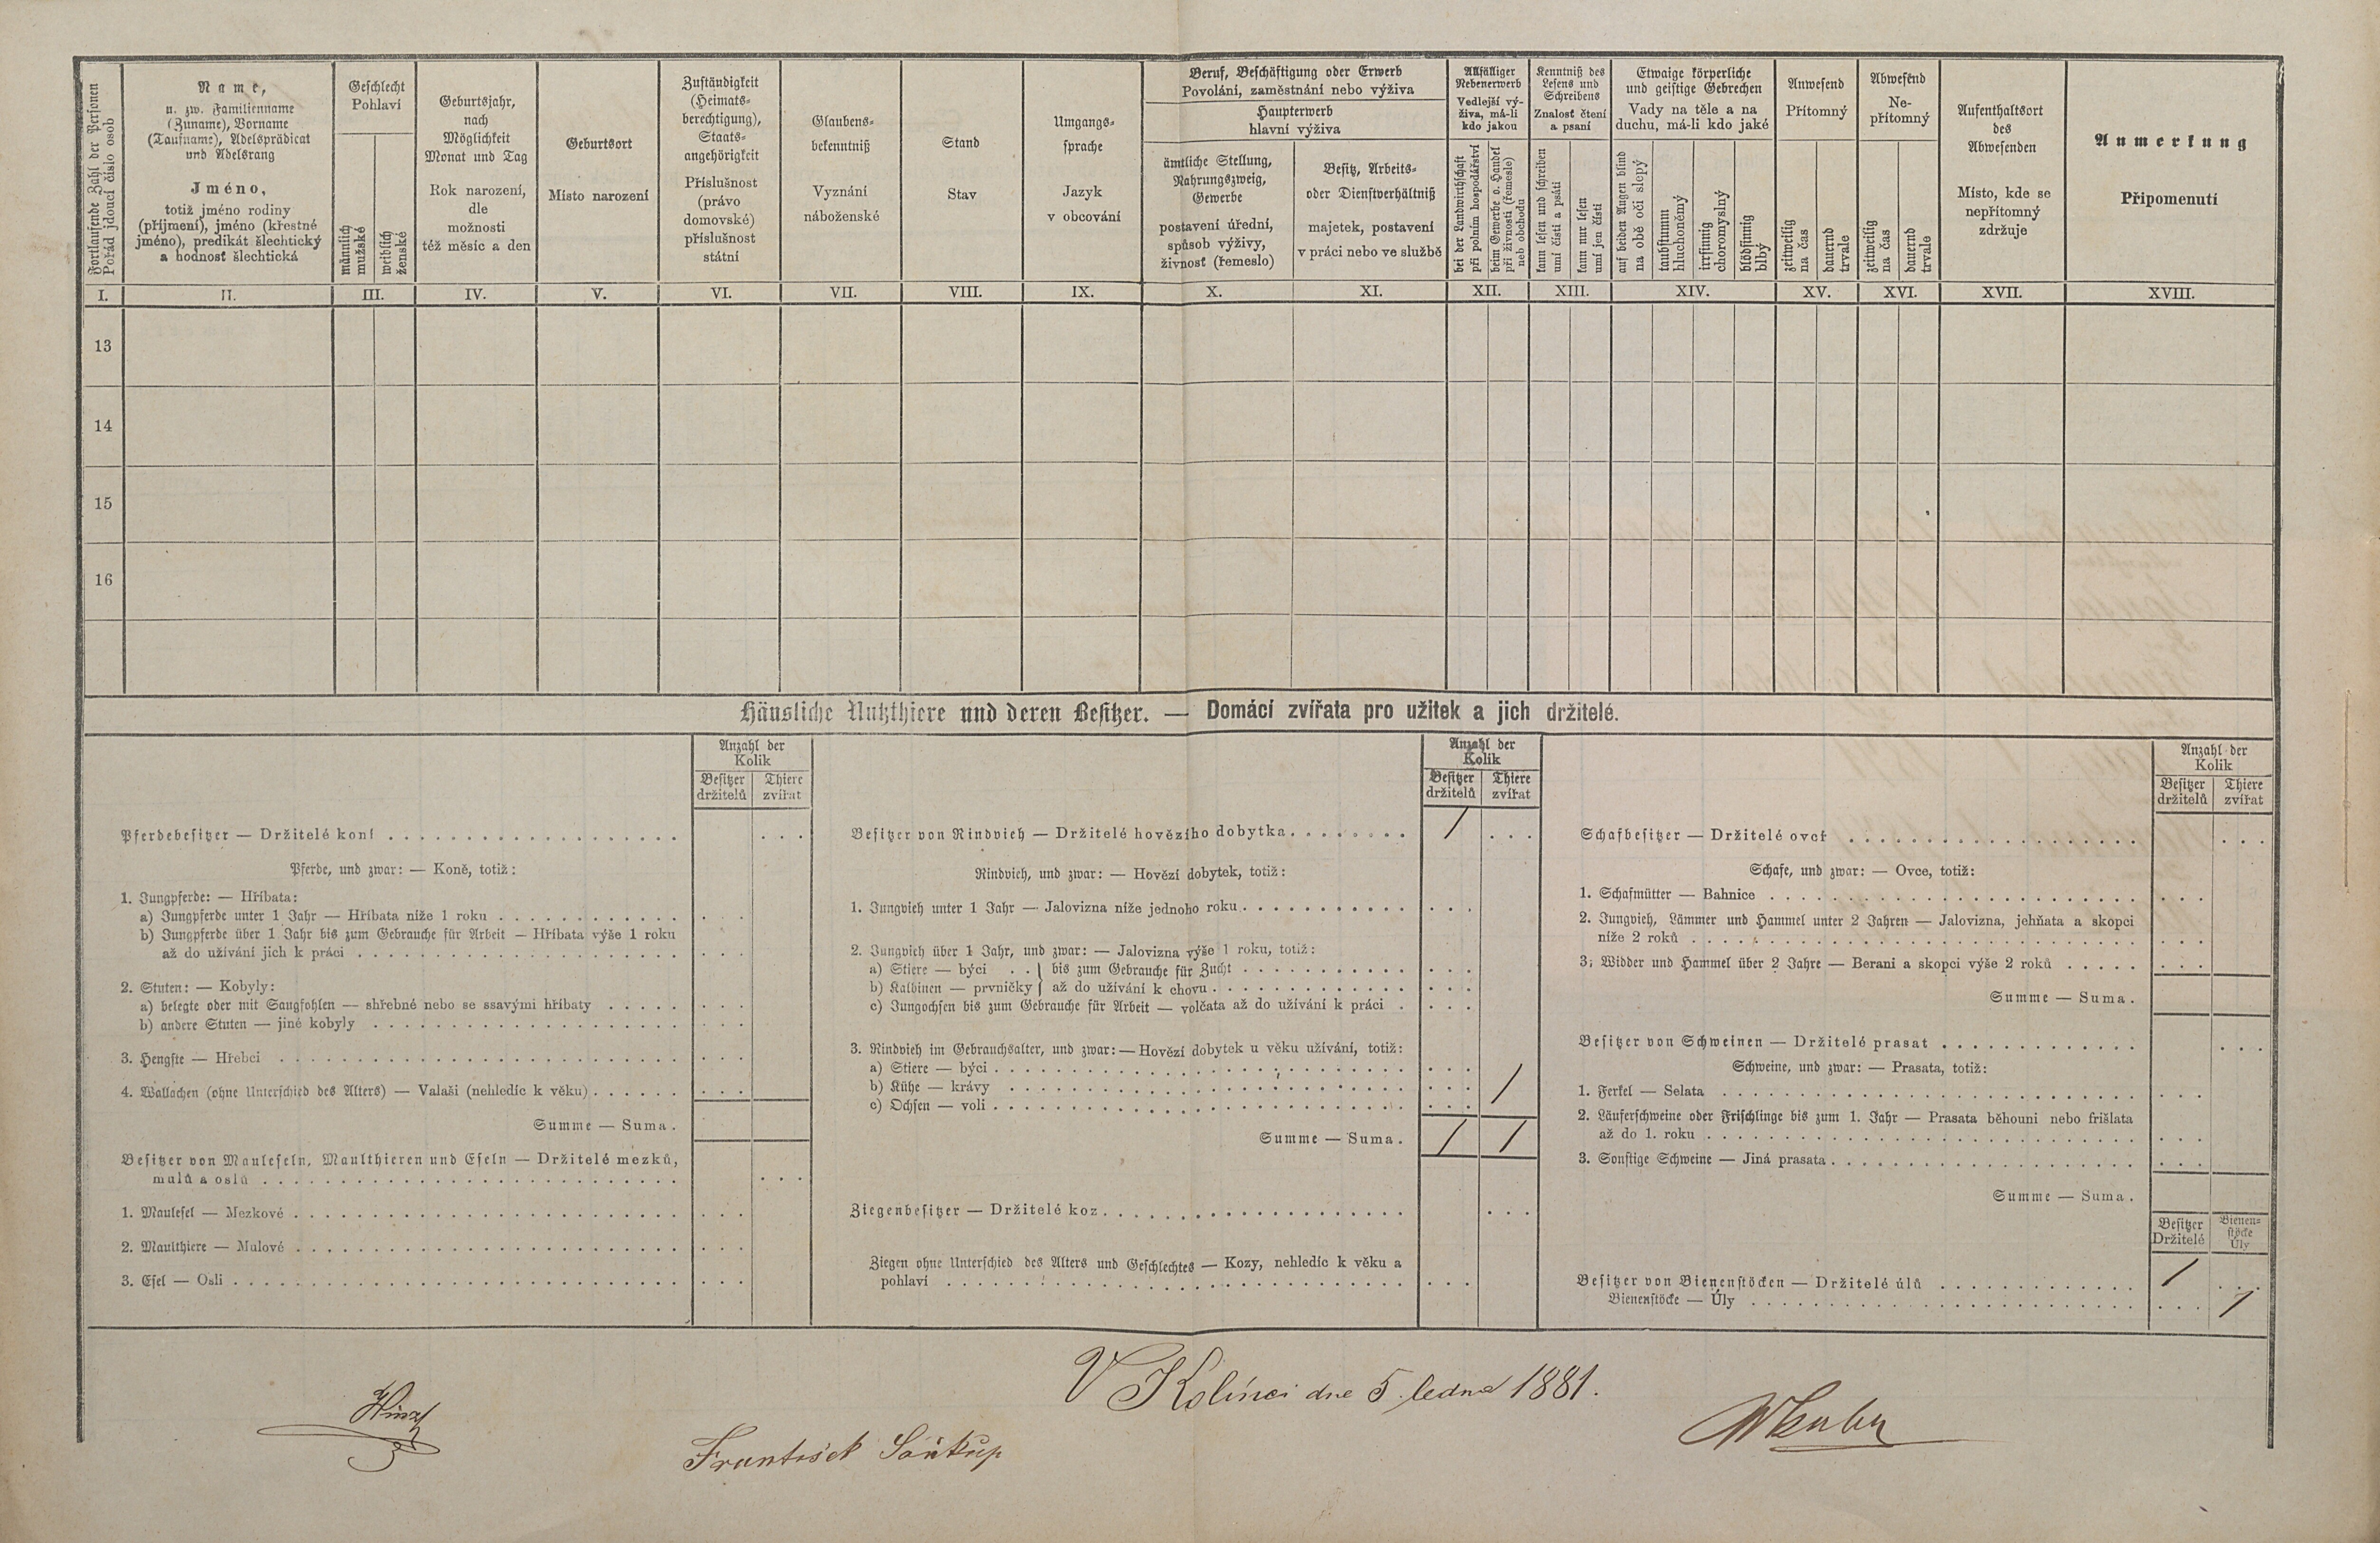 Fortlaufende Zahl der Personen
Pořád jdoucí číslo osob
Name,
u. zw. Familienname
(Zuname), Vorname
(Taufname), Adelsprädicat
und Adelsrang
Jméno,
totiž jméno rodiny
(příjmení), jméno (křestné
jméno), predikát šlechtický
a hodnost šlechtická
Geschlecht
Pohlaví
männlich
mužské
weiblich
ženské
Geburtsjahr,
nach
Möglichkeit
Monat und Tag
Rok narození,
dle
možnosti
též měsíc a den
Geburtsort
Místo narození
Zuständigkeit
(Heimats-
berechtigung),
Staats-
angehörigkeit
Příslušnost
(právo
domovské)
příslušnost
státní
Glaubens-
bekenntniß
Vyznání
náboženské
Stand
Stav
Umgangs-
sprache
Jazyk
v obcování
Beruf, Beschäftigung oder Erwerb
Povolání, zaměstnání nebo výživa
Haupterwerb
hlavní výživa
ämtliche Stellung,
Nahrungszweig,
Gewerbe
postavení úřední,
spůsob výživy,
živnost (řemeslo)
Besitz, Arbeits-
oder Dienstverhältniß
majetek, postavení
v práci nebo ve službě
Allfälliger
Nebenerwerb
Vedlejší vý-
živa, má-li
kdo jakou
bei der Landwirthschaft
při polním hospodářství
beim Gewerbe o. Handel
při živnosti (řemesle)
neb obchodu
Kenntniß des
Lesens und
Schreibens
Znalost čtení
a psaní
kann lesen und schreiben
umí čísti a psáti
kann nur lesen
umí jen čísti
Etwaige körperliche
und geistige Gebrechen
Vady na těle a na
duchu, má-li kdo jaké
auf beiden Augen blind
na obě oči slepý
taubstumm
hluchoněmý
irrsinnig
choromyslný
blödsinnig
blbý
Anwesend
Přítomný
zeitweilig
na čas
dauernd
trvale
Abwesend
Ne-
přítomný
zeitweilig
na čas
dauernd
trvale
Aufenthaltsort
des
Abwesenden
Místo, kde se
nepřítomný
zdržuje
Anmerkung
Připomenutí
I. II. III. IV. V. VI. VII. VIII. IX. X. XI. XII. XIII. XIV. XV. XVI. XVII. XVIII.
13
14
15
16
Häusliche Nutzthiere und deren Besitzer. — Domácí zvířata pro užitek a jich držitelé.
Anzahl der
Kolik
Besitzer Thiere
držitelů zvířat
Pferdebesitzer — Držitelé koní
Pferde, und zwar: — Koně, totiž:
1. Jungpferde: — Hříbata:
a) Jungpferde unter 1 Jahr — Hříbata níže 1 roku
b) Jungpferde über 1 Jahr bis zum Gebrauche für Arbeit — Hříbata výše 1 roku
až do užívání jich k práci
2. Stuten: — Kobyly:
a) belegte oder mit Saugfohlen — shřebné nebo se ssavými hříbaty
b) andere Stuten — jiné kobyly
3. Hengste — Hřebci
4. Wallachen (ohne Unterschied des Alters) — Valaši (nehledíc k věku)
Summe — Suma.
Besitzer von Mauleseln, Maulthieren und Eseln — Držitelé mezků,
mulů a oslů
1. Maulesel — Mezkové
2. Maulthiere — Mulové
3. Esel — Osli
Anzahl der
Kolik
Besitzer Thiere
držitelů zvířat
Besitzer von Rindvieh — Držitelé hovězího dobytka 1
Rindvieh, und zwar: — Hovězí dobytek, totiž:
1. Jungvieh unter 1 Jahr — Jalovizna níže jednoho roku
2. Jungvieh über 1 Jahr, und zwar: — Jalovizna výše 1 roku, totiž:
a) Stiere — býci . . } bis zum Gebrauche für Zucht
b) Kalbinen — prvničky } až do užívání k chovu
c) Jungochsen bis zum Gebrauche für Arbeit — volčata až do užívání k práci
3. Rindvieh im Gebrauchsalter, und zwar: — Hovězí dobytek u věku užívání, totiž:
a) Stiere — býci
b) Kühe — krávy 1
c) Ochsen — voli
Summe — Suma. 1 1
Ziegenbesitzer — Držitelé koz
Ziegen ohne Unterschied des Alters und Geschlechtes — Kozy, nehledíc k věku a
pohlaví
Anzahl der
Kolik
Besitzer Thiere
držitelů zvířat
Schafbesitzer — Držitelé ovcí
Schafe, und zwar: — Ovce, totiž:
1. Schafmütter — Bahnice
2. Jungvieh, Lämmer und Hammel unter 2 Jahren — Jalovizna, jehňata a skopci
níže 2 roků
3. Widder und Hammel über 2 Jahre — Berani a skopci výše 2 roků
Summe — Suma.
Besitzer von Schweinen — Držitelé prasat
Schweine, und zwar: — Prasata, totiž:
1. Ferkel — Selata
2. Läuferschweine oder Frischlinge bis zum 1. Jahr — Prasata běhouni nebo frišlata
až do 1. roku
3. Sonstige Schweine — Jiná prasata
Summe — Suma.
Besitzer Bienen-
Držitelé stöcke
Úly
Besitzer von Bienenstöcken — Držitelé úlů 1
Bienenstöcke — Úly 1
V Kolínci dne 5. ledna 1881.
František Soukup